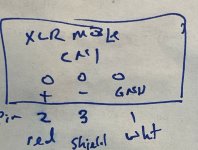 XLR male
CN1
O O O
+ - GND
Pin 2 3 1
red shield wht